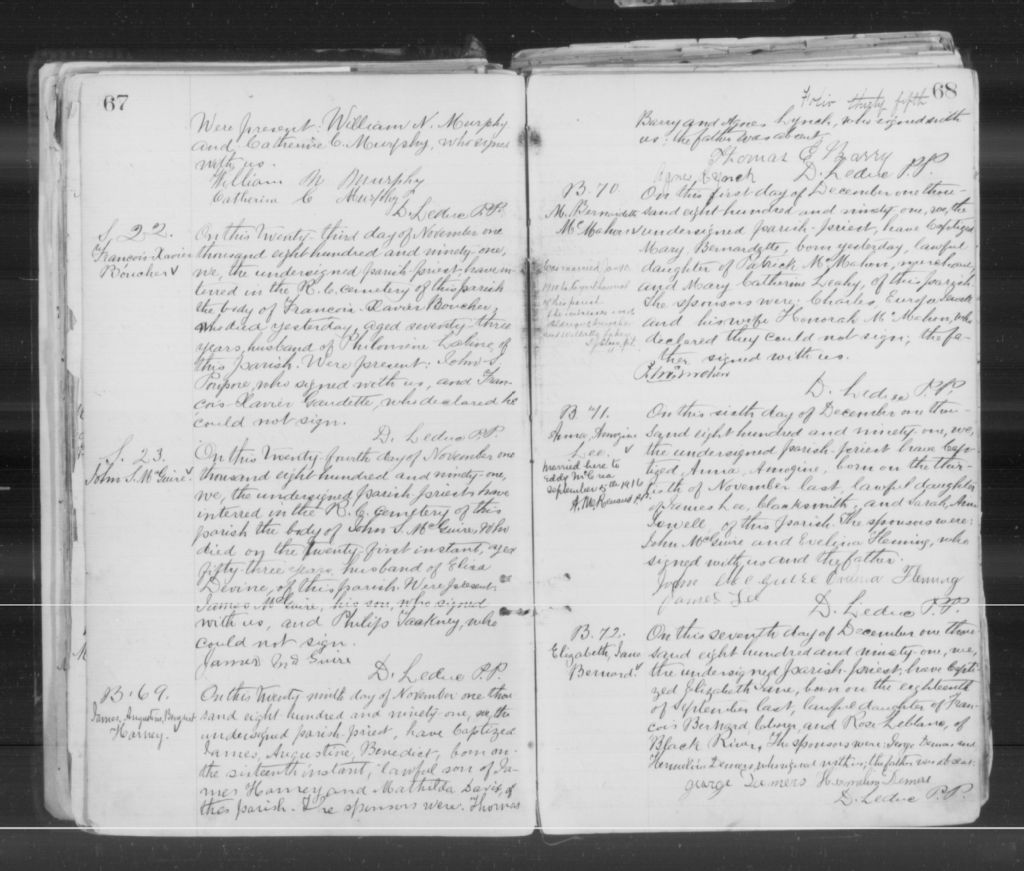 67
Were present: William N. Murphy
and Catherine C. Murphy, who signed
with us.
William N Murphy
Catherin C Murphy
D. Leduc P.P.
S. 22.
Francois Xavier
Boucher
On this twenty-third day of November one
thousand eight hundred and ninety-one,
we, the undersigned parish-priest, have in-
terred in the R. C. cemetery of this parish
the body of Francois Xavier Boucher,
who died yesterday, aged seventy-three
years, husband of Philomine of
this parish. Were present: John S.
Poupore, who signed with us, and Fran-
cois Xavier Gaudette, who declared he
could not sign.
D. Leduc P.P.
S. 23.
John S. McGuire
On this twenty-fourth day of November one
thousand eight hundred and ninety-one,
we, the undersigned parish-priest have
interred in the R. C. cemetery of this
parish the body of John S. McGuire, who
died on the twenty-first instant, aged
fifty-three years, husband of Eliza
Devine, of this parish. Were present:
James McGuire, his son, who signed
with us, and Philip, who
could not sign.
James McGuire
D. Leduc P.P.
B. 69.
James, Augustine, Benedict
Harney.
On this twenty ninth day of November one thou
sand eight hundred and ninety-one, we, the
undersigned parish-priest, have baptized
James, Augustine, Benedict, born on
the sixteenth instant, lawful son of Ja-
mes Harney and Mathilda Davis, of
this parish. The sponsors were: Thomas
68
Folio thirty fifth
Barry and Agnes Lynch, who signed with
us: the father was absent.
Thomas E Barry
Agnes Lynch D. Leduc P.P.
B. 70.
M. Bernardette
McMahon
On this first day of December one thou-
sand eight hundred and ninety-one, we, the
undersigned parish-priest, have baptized
Mary Bernardette, born yesterday, lawful
daughter of Patrick McMahon, merchant,
and Mary Catherine Leahy, of this parish.
The sponsors were: Charles
and his wife Honorah McMahon, who
declared they could not sign; the fa-
ther signed with us.
P. McMahon
D. Leduc P.P.
B. 71.
Anna, Amogine
Lee.
married here to
Eddy McCrea
September 5th 1916
On this sixth day of December one thou-
sand eight hundred and ninety-one, we,
the undersigned parish-priest have bap-
tized, Anna, Amogine, born on the thir-
tieth of November last, lawful daughter
of James Lee, blacksmith, and Sarah, Ann
Sewell, of this parish. The sponsors were:
John McGuire and Evelina Fleming, who
signed with us and the father.
John McGuire Evelina Fleming
James Lee
D. Leduc P.P.
B. 72.
Elizabeth, Jane
Bernard.
On this seventh day of December one thou
sand eight hundred and ninety-one, we,
the undersigned parish-priest, have bapti-
zed Elizabeth Jane, born on the eighteenth
of September last, lawful daughter of Fran-
cois Bernard, and Rose Leblanc, of
Black River. The sponsors were George Demers and
Hermelina Demers who signed with us; the father was absent.
george Demers Hermelina Demers
D. Leduc P.P.